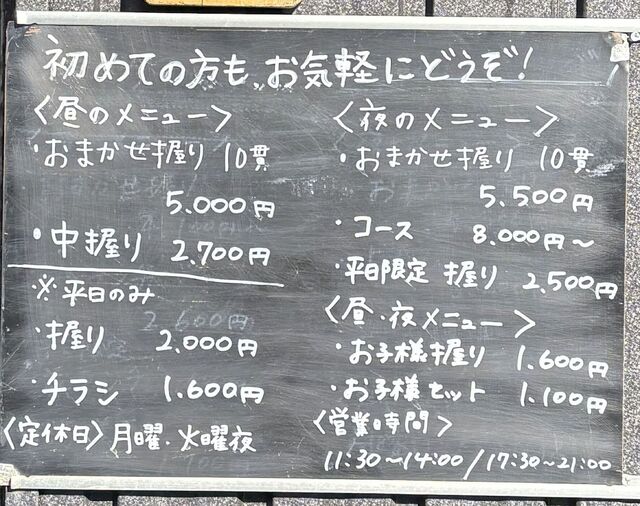 初めての方も、お気軽にどうぞ!
〈昼のメニュー〉
・おまかせ握り 10貫
5.000円
・中握り 2.700円
※平日のみ
・握り 2.000円
・チラシ 1.600円
〈定休日〉月曜・火曜夜
〈夜のメニュー〉
・おまかせ握り 10貫
5.500円
・コース 8.000円〜
・平日限定 握り 2.500円
〈昼・夜メニュー〉
・お子様握り 1.600円
・お子様セット 1.100円
〈営業時間〉
11:30〜14:00/17:30〜21:00